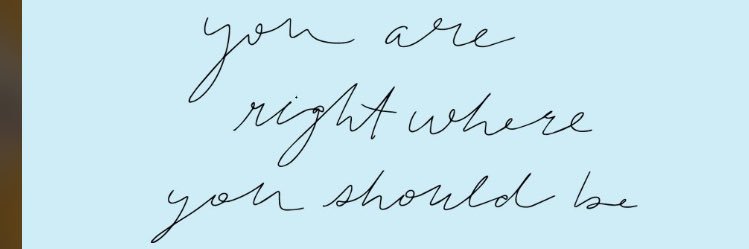 you are
right where
you should be